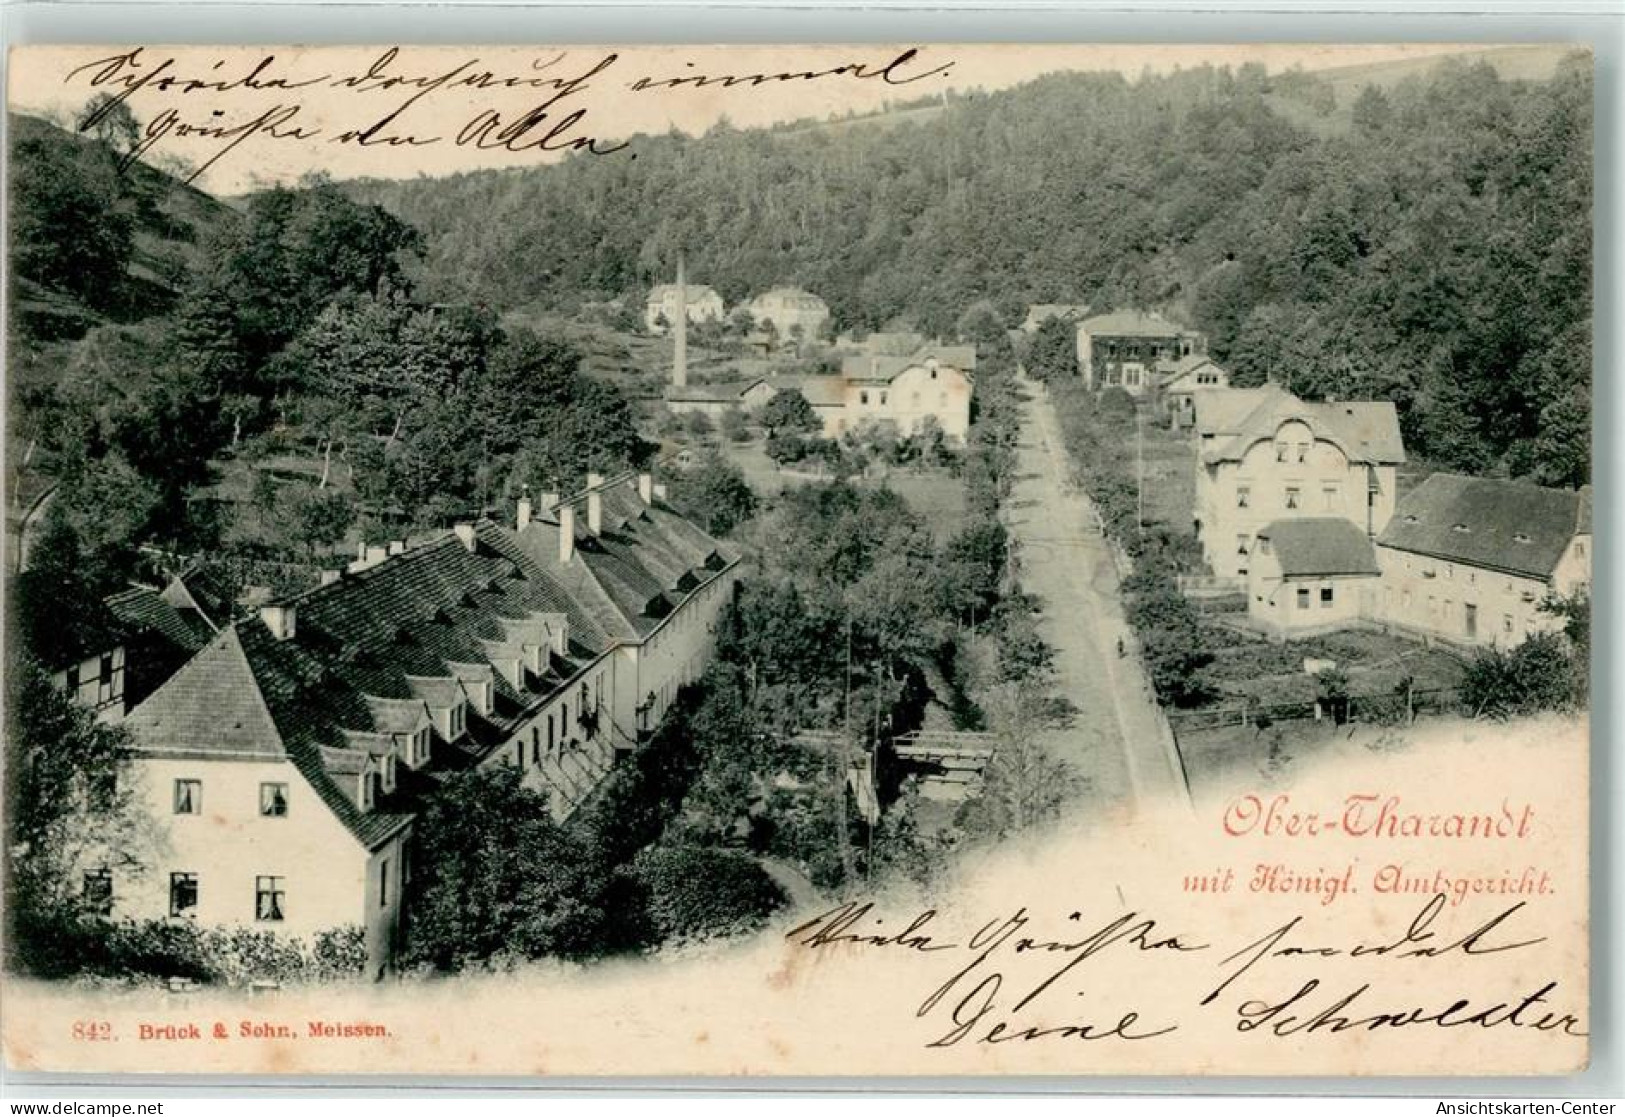 Schreibe doch auch einmal.
Grüße an Alle.
Ober-Tharandt
mit Königl. Amtsgericht.
Viele Grüße sendet
Deine Schwester
842. Brück & Sohn, Meissen.
delcampe.net
Ansichtskarten-Center